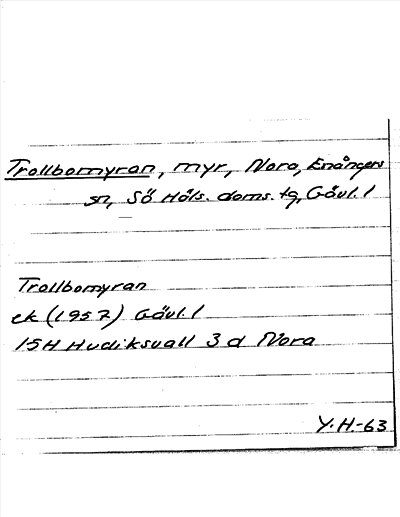 Trollbomyran, myr, Nora, Enångers
sn, Sö Häls. doms. tg, Gävl. l
Trollbomyran
ek (1957) Gävl. l
15H Hudiksvall 3 d Nora
Y. H.-63